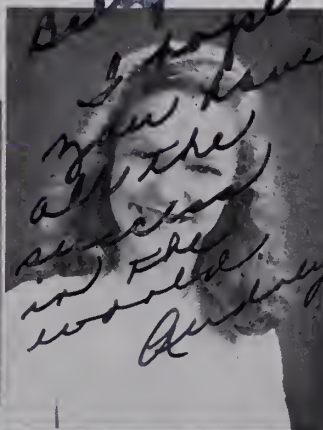 I hope
you have
all the
success
in the
world.
Audrey